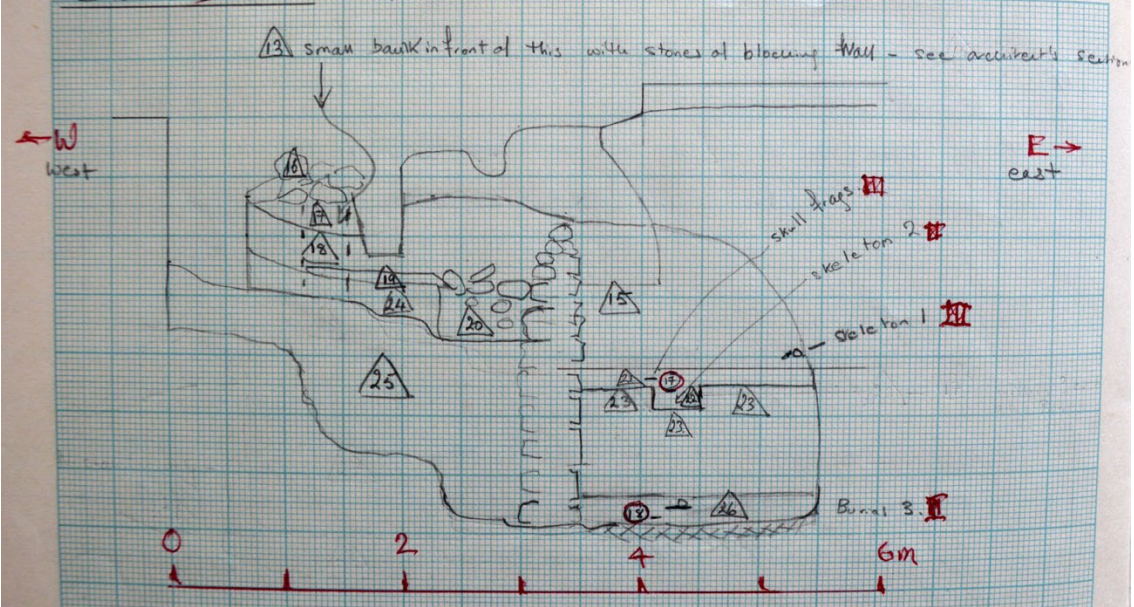 13 small baulk in front of this with stones of blocking wall - see architect's section
← W
west
E →
east
16
17
18
19
24
20
25
15
skull frags.
skeleton 2
skeleton 1
17
23
23
23
18
26
Burial 3.
0 2 4 6m